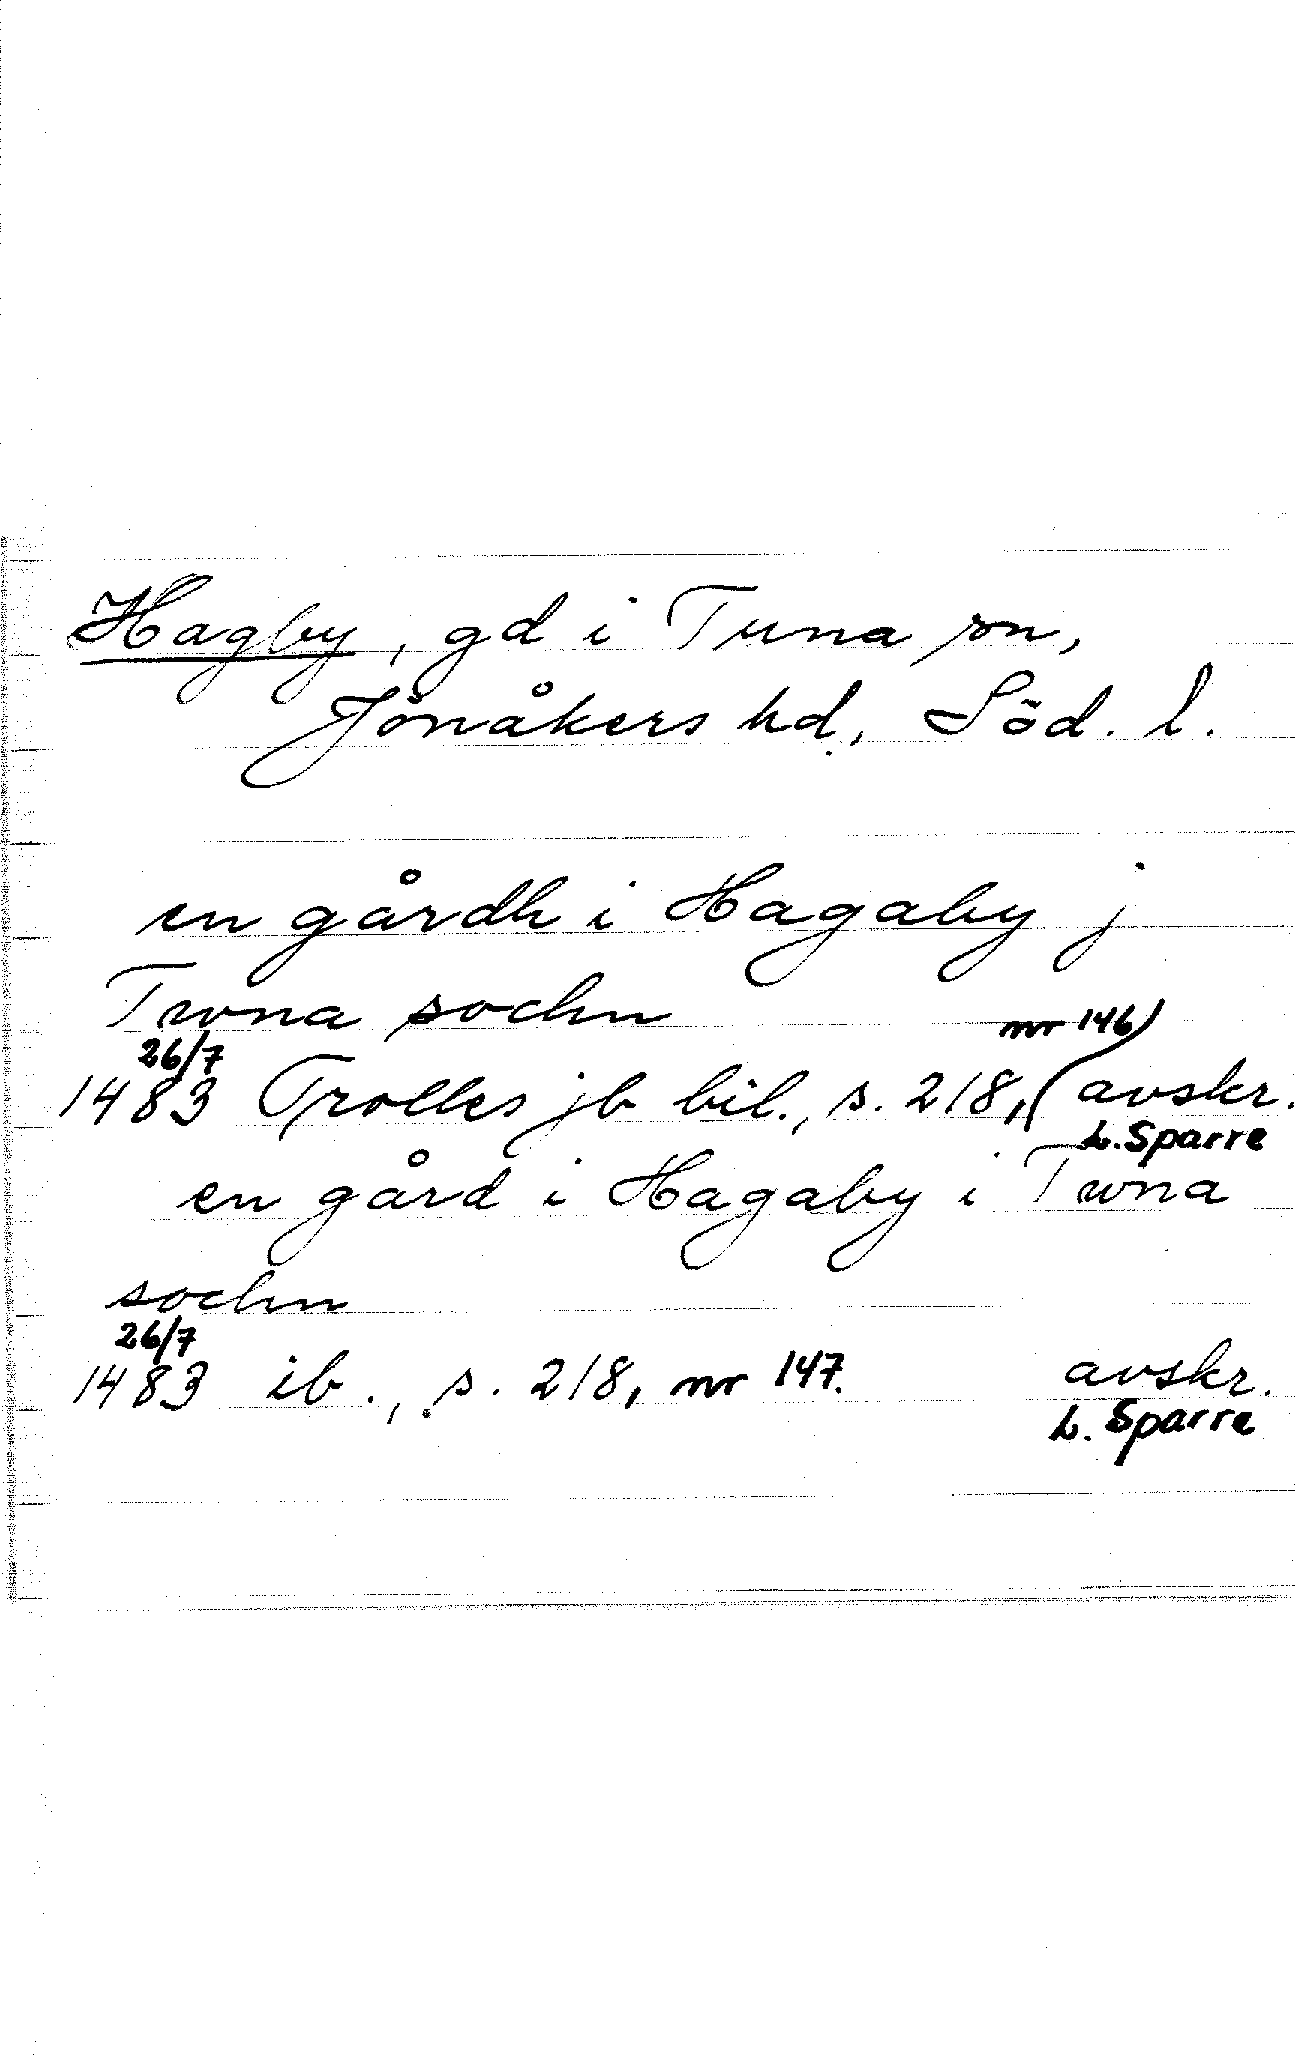 Hagby, gd i Tuna sn,
Jönåkers hd, Söd. l.
en gårdh i Hagaby j
Twna sochn
nr 146
26/7
1483 Trolles jb bil., s. 218, avskr.
L. Sparre
en gård i Hagaby i Twna
sochn
26/7
1483 ib., s. 218, nr 147. avskr.
L. Sparre